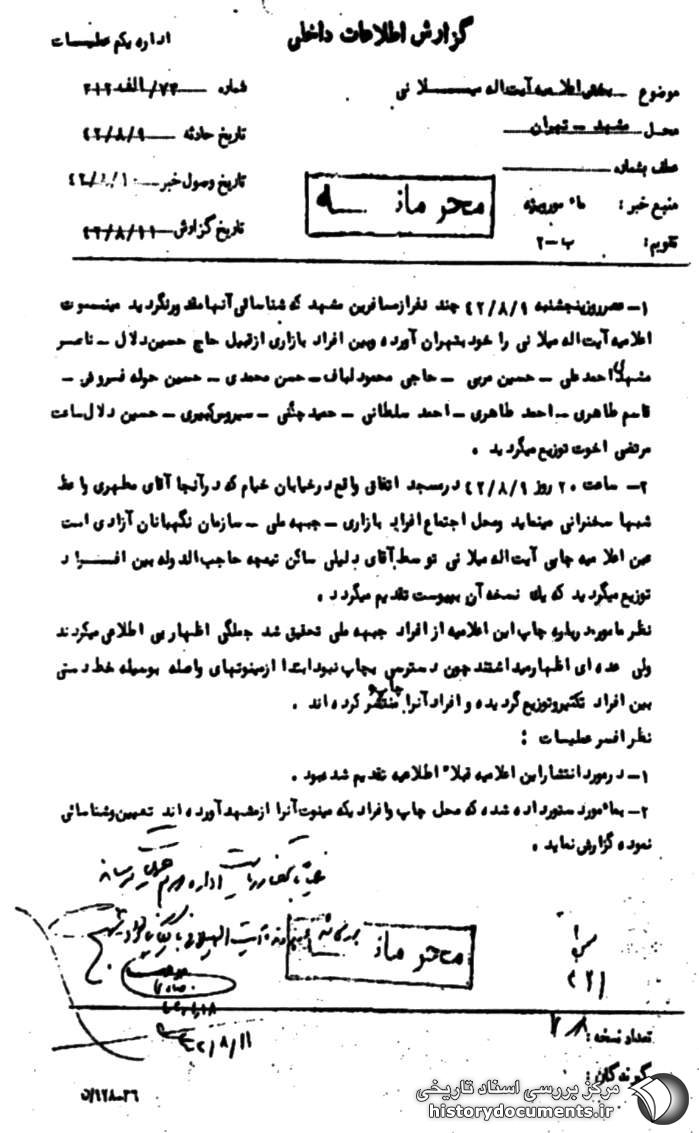 گزارش اطلاعات داخلی
اداره یکم عملیات
موضوع پخش اعلامیه آیت اله میلانی
شماره ۲۰۲/الف ۷۳
محل مشهد - تهران
تاریخ حادثه ۴۲/۸/۹
عطف بشماره
تاریخ وصول خبر ۴۲/۸/۱۰
منبع خبر: مامور ویژه
تاریخ گزارش ۴۲/۸/۱۱
تقویم: ب-۲
محرمانه
۱- عصر روز پنجشنبه ۴۲/۸/۹ چند نفر از مسافرین مشهد که شناسائی آنها مقدور نگردید مینوت
اعلامیه آیت اله میلانی را خود بتهران آورده و بین افراد بازاری از قبیل حاج حسین دلال - ناصر
مشهدی احمد علی - حسین مربی - حاجی محمود لباف - حسن محمدی - حسین حوله فروش -
قاسم طاهری - احمد طاهری - احمد سلطانی - حمید چنگی - سیروس کبیری - حسین دلال ساعت
مرتضی اخوت توزیع میگردید .
۲- ساعت ۲۰ روز ۴۲/۸/۹ در مسجد اتفاق واقع در خیابان خیام که در آنجا آقای مطهری واعظ
شبها سخنرانی مینماید و محل اجتماع افراد بازاری - جبهه ملی - سازمان نگهبانان آزادی است
عین اعلامیه چاپی آیت اله میلانی توسط آقای دلیلی ساکن تیمچه حاجب الدوله بین افراد
توزیع میگردید که یک نسخه آن بپیوست تقدیم میگردد .
نظر مامور درباره چاپ این اعلامیه از افراد جبهه ملی تحقیق شد جملگی اظهار بی اطلاعی میکردند
ولی عده ای اظهار میداشتند چون دسترسی بچاپ نبود ابتدا از مینوتهای واصله بوسیله خط دستی
بین افراد تکثیر و توزیع گردیده و افراد آنرا چاپ و منتشر کرده اند .
نظر افسر عملیات :
۱- در مورد انتشار این اعلامیه قبلا اطلاعیه تقدیم شده بود .
۲- بمامور دستور داده شده که محل چاپ و افرادیکه مینوت آنرا از مشهد آورده اند تعیین و شناسائی
نموده گزارش نماید .
محرمانه
۳۲۱
۴۲/۸/۱۱
تعداد نسخه:
گیرندگان:
۵/۱۲۸-۳۶
مرکز بررسی اسناد تاریخی
historydocuments.ir